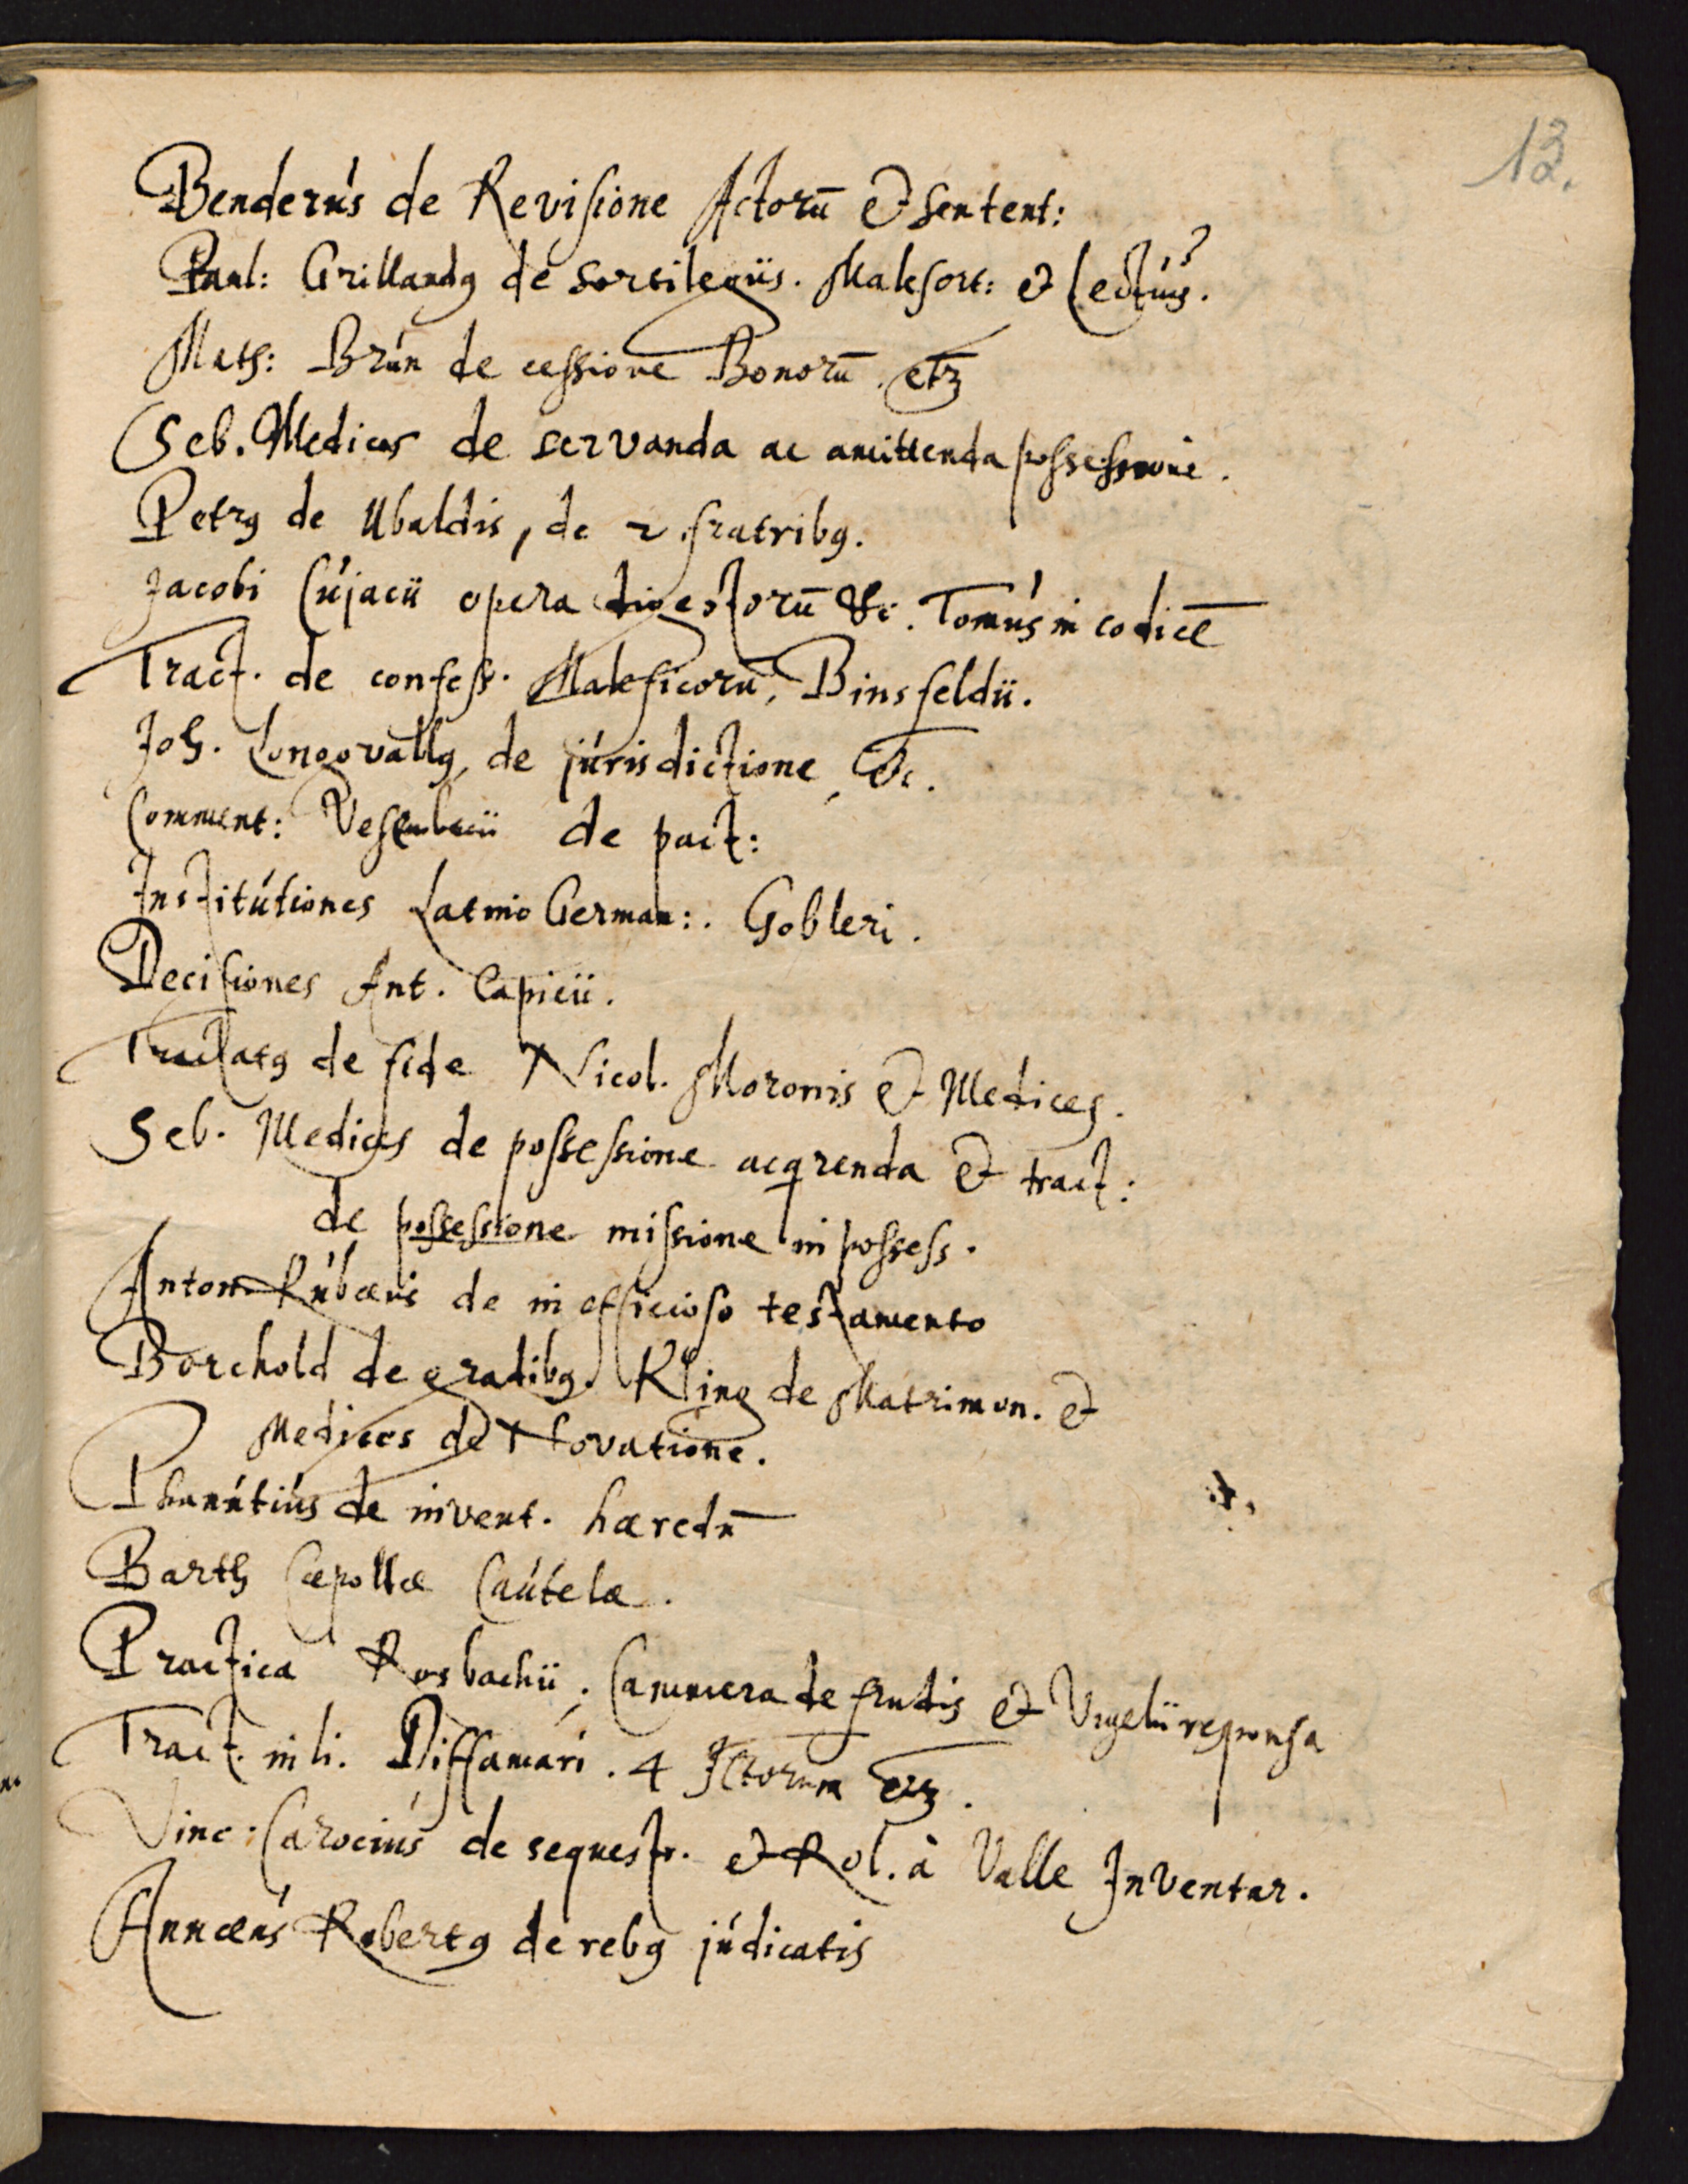 13.
Benderus de Revisione Actorū & Sentent:
Paul: Grillandꝰ de Sortilegiis. Malefort: & Lectuis.
Math: Brun de cessione Bonorū. etz
Seb. Medices de servanda ac amittenda possessione.
Petrꝰ de Ubaldis, de 2 fratribꝰ.
Jacobi Cujacii opera digestorū &c. Tomus in codicē
Tract. de confess. Maleficorū, Binsfeldii.
Joh. Longovallꝰ, de jurisdictione, &c.
Comment: Vesembecii de pact:
Institutiones Latino German:. Gobleri.
Decisiones Ant. Capicii.
Tractatꝰ de fide Nicol. Moronis & Medices.
Seb. Medices de possessione acqrenda & tract:
de possessione missione in possess.
Anton. Rubæus de inofficioso testamento
Borchold de gradibꝰ. Kling de Matrimon. &
Medices de Novatione.
Phanutius de invent. hæredū
Barth Cæpollæ Cautelæ.
Practica Rosbachii; Cammera de fru&is & Vigelii responsa
Tract. in li. Diffamari. 4 JCtorum etz.
Vinc: Carocius de sequestr. & Rol. à Valle Inventar.
Annæus Robertꝰ de rebꝰ judicatis